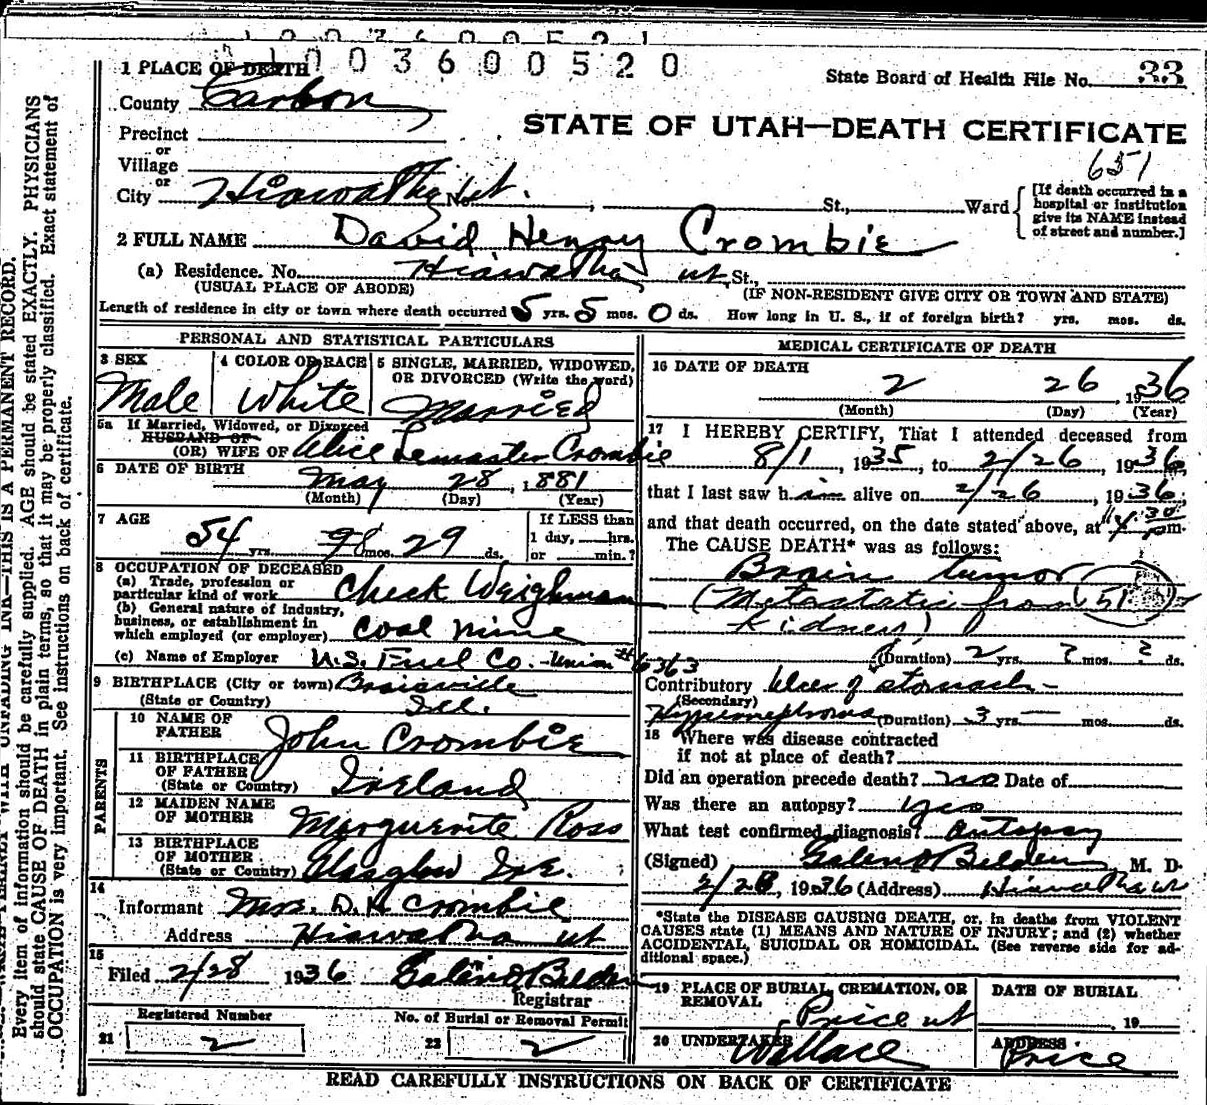 1 0 0 3 6 0 0 5 2 1
1 PLACE OF DEATH 1 0 0 3 6 0 0 5 2 0
State Board of Health File No. 33
County Carbon
STATE OF UTAH—DEATH CERTIFICATE
Precinct
or
651
Village
or
City Hiawatha, Ut. No. , St., Ward
[If death occurred in a hospital or institution give its NAME instead of street and number.]
2 FULL NAME David Henry Crombie
(a) Residence. No. Hiawatha, ut St.,
(USUAL PLACE OF ABODE) (IF NON-RESIDENT GIVE CITY OR TOWN AND STATE)
Length of residence in city or town where death occurred 5 yrs. 5 mos. 0 ds. How long in U. S., if of foreign birth? yrs. mos. ds.
PERSONAL AND STATISTICAL PARTICULARS
3 SEX
Male
4 COLOR OR RACE
White
5 SINGLE, MARRIED, WIDOWED, OR DIVORCED (Write the word)
Married
5a If Married, Widowed, or Divorced
HUSBAND OF
(OR) WIFE OF Alice Lemaster Crombie
6 DATE OF BIRTH
May 28, 1881
(Month) (Day) (Year)
7 AGE
54 yrs. 98 mos. 29 ds.
If LESS than
1 day, hrs.
or min.?
8 OCCUPATION OF DECEASED
(a) Trade, profession or
particular kind of work Check Weighman
(b) General nature of industry,
business, or establishment in
which employed (or employer) Coal Mine
(c) Name of Employer U.S. Fuel Co. - Union # 6363
9 BIRTHPLACE (City or town)
(State or Country) Ill.
PARENTS
10 NAME OF FATHER John Crombie
11 BIRTHPLACE OF FATHER
(State or Country) Ireland
12 MAIDEN NAME OF MOTHER Marguerite Ross
13 BIRTHPLACE OF MOTHER
(State or Country) Glasglow Ire.
14
Informant Mrs. D. H. Crombie
Address Hiawatha ut
15
Filed 2/28 1936 Galen O Belden
Registrar
Registered Number
21 2
No. of Burial or Removal Permit
22 2
MEDICAL CERTIFICATE OF DEATH
16 DATE OF DEATH
2 26, 1936
(Month) (Day) (Year)
17 I HEREBY CERTIFY, That I attended deceased from
8/1, 1935, to 2/26, 1936,
that I last saw him alive on 2/26, 1936;
and that death occurred, on the date stated above, at 4:30 pm.
The CAUSE DEATH* was as follows:
Brain tumor
(Metastatic from 51
kidney)
(Duration) 2 yrs. ? mos. ? ds.
Contributory Ulcer of stomach -
(Secondary)
Hypernephroma (Duration) 3 yrs. — mos. ds.
18 Where was disease contracted
if not at place of death?
Did an operation precede death? no Date of
Was there an autopsy? yes
What test confirmed diagnosis? Autopsy
(Signed) Galen O Belden, M. D.
2/28, 1936 (Address) Hiawatha ut
*State the DISEASE CAUSING DEATH, or, in deaths from VIOLENT
CAUSES state (1) MEANS AND NATURE OF INJURY; and (2) whether
ACCIDENTAL, SUICIDAL OR HOMICIDAL. (See reverse side for ad-
ditional space.)
19 PLACE OF BURIAL, CREMATION, OR REMOVAL
Price ut
DATE OF BURIAL
, 19
20 UNDERTAKER
Wallace
ADDRESS
Price
READ CAREFULLY INSTRUCTIONS ON BACK OF CERTIFICATE
Every item of information should be carefully supplied. AGE should be stated EXACTLY. PHYSICIANS
should state CAUSE OF DEATH in plain terms, so that it may be properly classified. Exact statement of
OCCUPATION is very important. See instructions on back of certificate.
WITH UNFADING INK—THIS IS A PERMANENT RECORD.